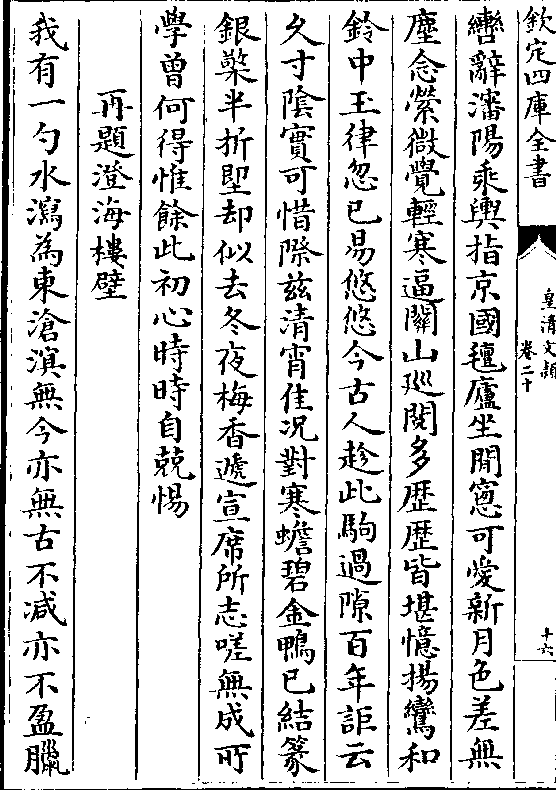 欽定四庫全書
皇清文穎
卷二十
十六
轡辭瀋陽乘輿指京國氊廬坐閒窻可愛新月色差無
塵念縈微覺輕寒逼關山廵閱多歴歴皆堪憶揚鸞和
鈴中玉律忽已易悠悠今古人趁此駒過隙百年詎云
久寸隂實可惜際兹清宵佳况對寒蟾碧金鴨已結篆
銀檠半折卽却似去冬夜梅香遞宣席所志嗟無成所
學曾何得惟餘此初心時時自兢惕
再題澄海樓壁
我有一勺水瀉為東滄溟無今亦無古不减亦不盈臘